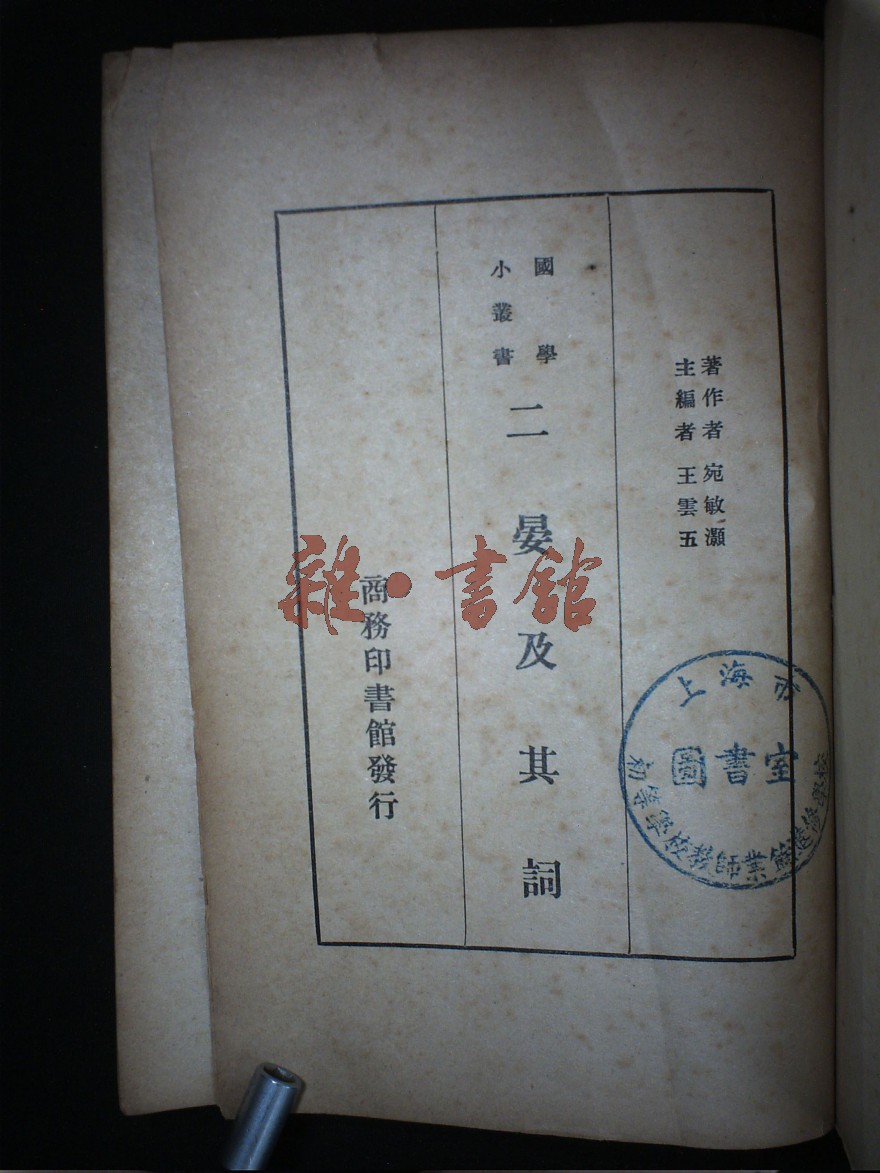 著作者 宛敏灝
主編者 王雲五
國學
小叢書
二晏及其詞
商務印書館發行
雜·書館
上海市
圖書室
初等學校教師業餘進修學校